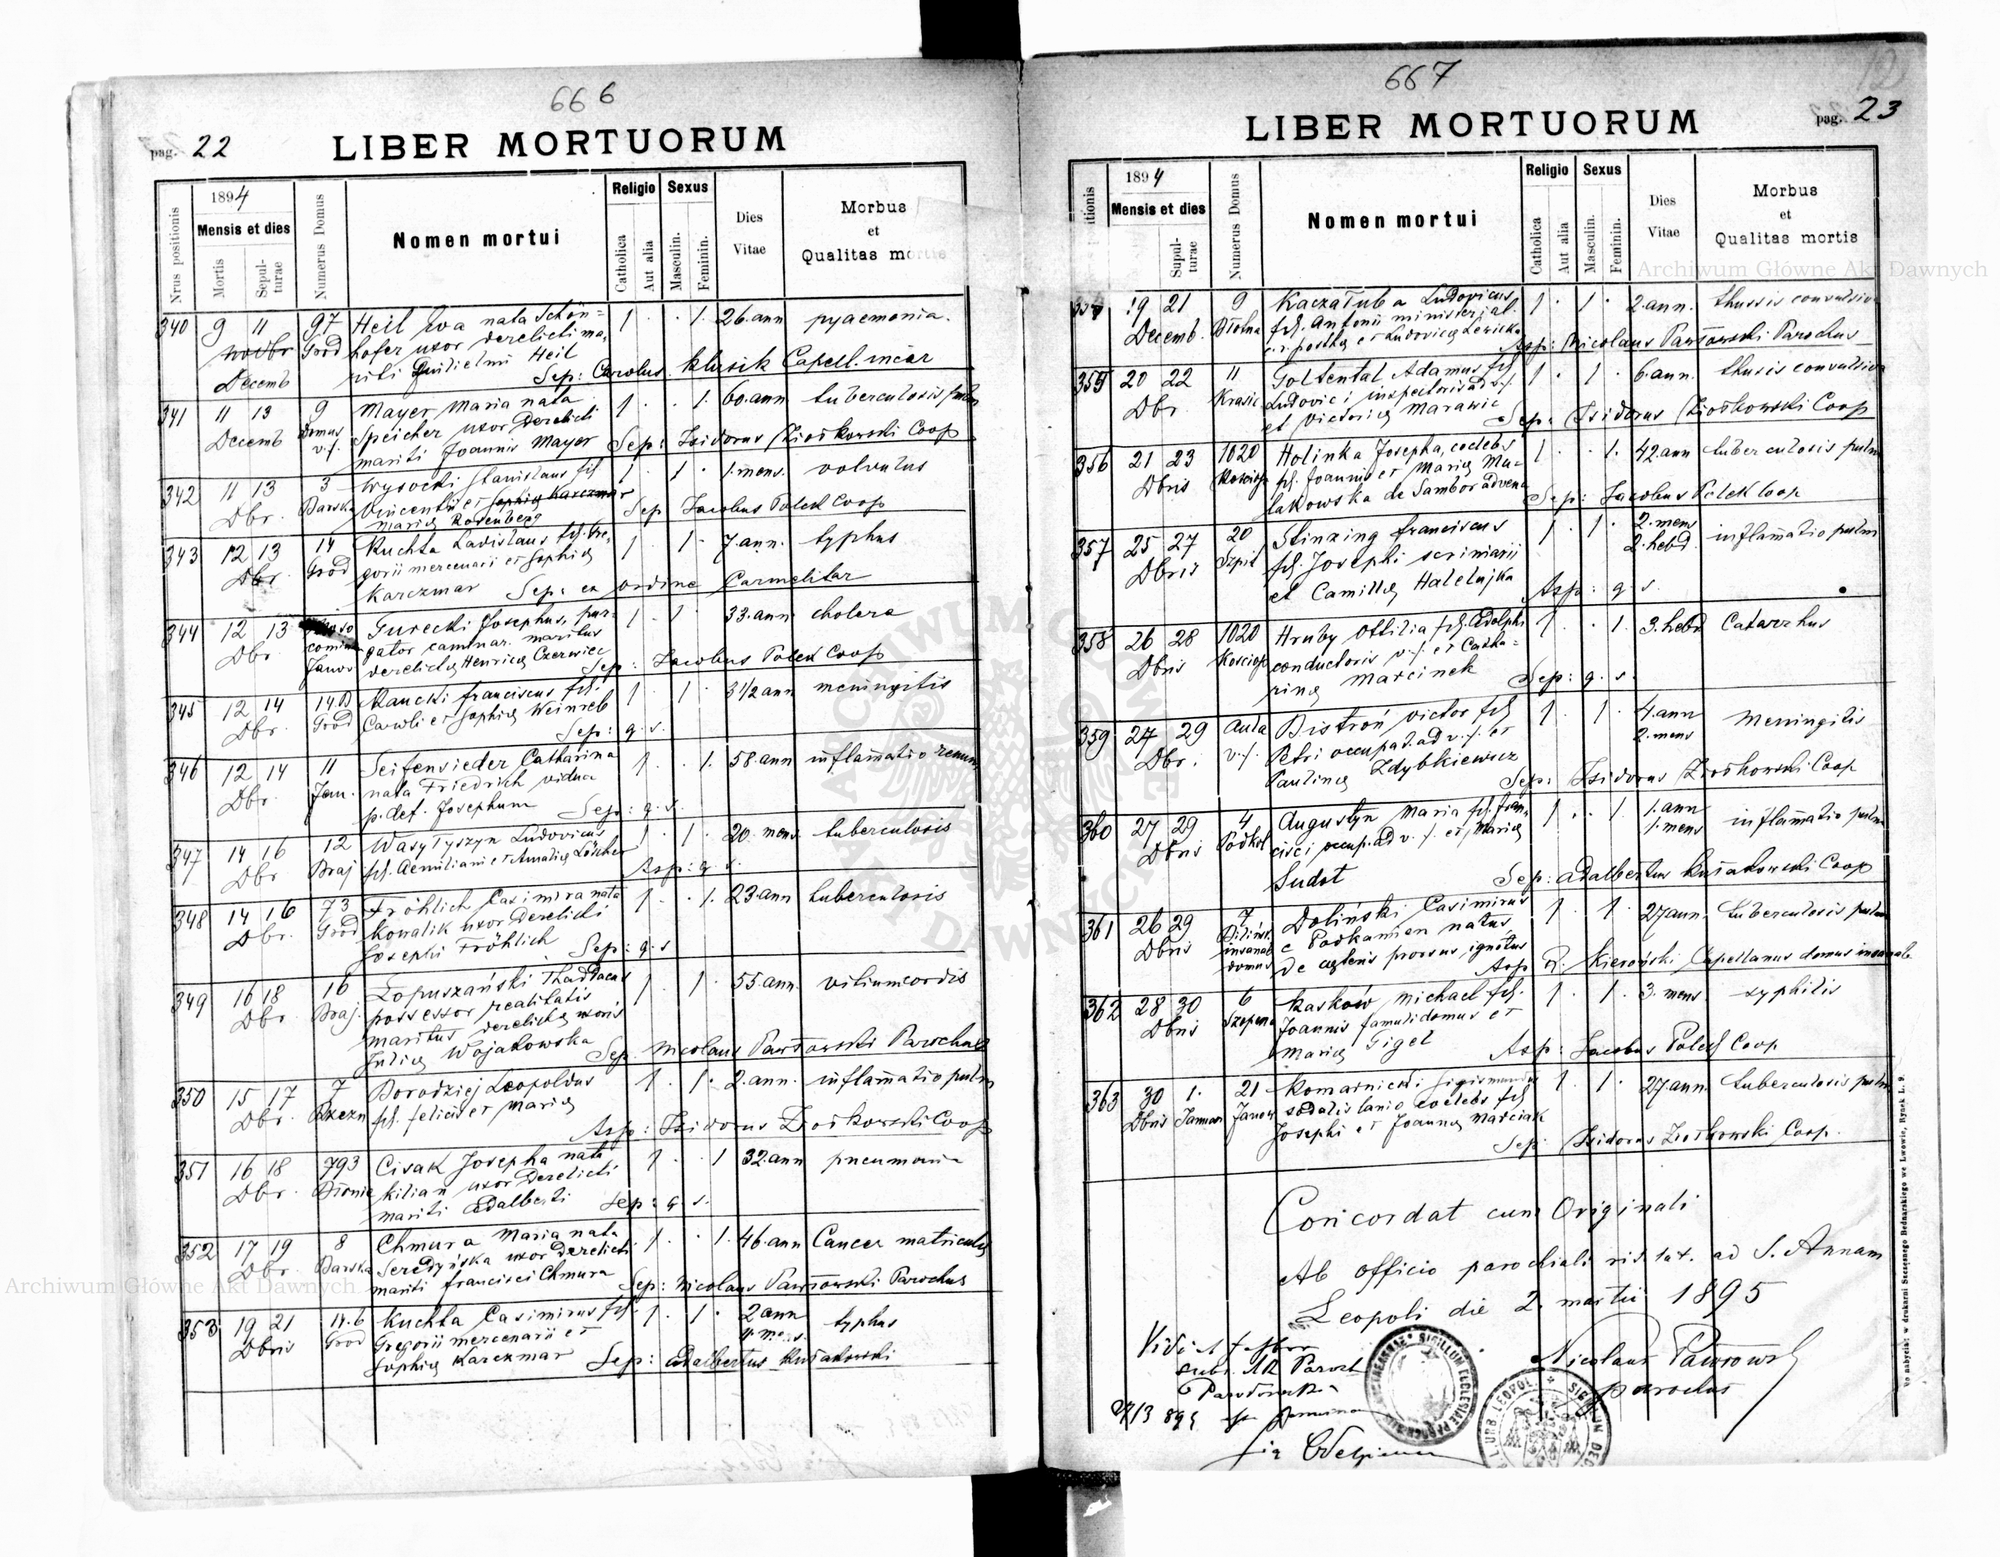 666
pag. 22
LIBER MORTUORUM
Nrus positionis
1894
Mensis et dies
Mortis
Sepul-
turae
Numerus Domus
Nomen mortui
Religio
Catholica
Aut alia
Sexus
Masculin.
Feminin.
Dies
Vitae
Morbus
et
Qualitas mortis
340 9 11 97 Heil Eva nata Schön= 1 . . 1. 26.ann pyaemonia.
novbr Grod hofer uxor derelicti ma,
Decemb riti Guilielmi Heil
Sep: Carolus Klusik Capell. mcar
341 11 13 9 Mayer Maria nata 1 . . 1. 60.ann tuberculosis pulm
Decemb Domus Speicher uxor Derelicti
v.f. mariti Joannis Mayer Sep: Isidorus Ziołkowski Coop
342 11 13 3 Wysocki Stanislaus fil 1. 1 . 1.mens. volvulus
Dbr. Barska Vincentii et Sophię Karczmar
Marię Rosenberg Sep Jacobus Polek Coop
343 12 13 14 Kuchta Ladislaus fil. Gre, 1 . 1 . 7.ann. typhus
Dbr. Grod gorii mercenarii et Sophię
Karczmar Sep: ex ordine Carmelitar
344 12 13 Gurecki Josephus, pur= 1 . 1 . 33.ann. cholera
Dbr. gator caminar. maritus
Janow derelictę Henricę Czerwiec Sep: Jacobus Polek Coop
345 12 14 14.D Rancki Franciscus fil. 1 . 1 . 3 1/2 ann meningitis
Dbr. Grod Caroli et Sophię Weinreb
Sep: q. s.
346 12 14 11 Seifensieder Catharina 1 . . 1. 58.ann inflam̄atio renum
Dbr. Jan. nata Friedrich vidua
p.def. Josephum Sep: q. s.
347 14 16 12 Wasyłyszyn Ludovicus 1 . 1 . 20. mens. tuberculosis
Dbr Braj fil. Aemiliani et Amalię Löscher Asp: q. s.
348 14 16 73 Fröhlich Casimira nata 1 . . 1. 23.ann tuberculosis
Dbr. Grod Kowalik uxor Derelicti
Josephi Fröhlich Sep: q. s
349 16 18 16 Łopuszański Thaddaeus 1 . 1 . 55.ann. vitium cordis
Dbr. Braj. possessor realitatis
maritus derelictę uxoris
Julię Wojakowska Sep. Nicolaus Pawłowski Parochus
350 15 17 7 Borodziej Leopoldus 1 . 1 . 2.ann. inflam̄atio pulm
Dbr. Rzezn fil. Felicis et Marię
Asp: Isidorus Ziołkowski Coop
351 16 18 793 Cisak Josepha nata 1 . . 1 32.ann pneumonia
Dbr. Błonie Kilian uxor derelicti
mariti Adalberti Sep: q. s.
352 17 19 8 Chmura Maria nata 1 . . 1. 46.ann Cancer matriculę
Dbr. Barska Seredyńska uxor derelicti
mariti Francisci Chmura Sep: Nicolaus Pawłowski Parochus
353 19 21 14.b Kuchta Casimirus fil. 1 . 1 . 2 ann typhus
Dbris Grod Gregorii mercenarii et 4 mens.
Sophię Karczmar Sep: Adalbertus Kusiakowski
667
pag. 23
LIBER MORTUORUM
1894
Mensis et dies
Sepul-
turae
Numerus Domus
Nomen mortui
Religio
Catholica
Aut alia
Sexus
Masculin.
Feminin.
Dies
Vitae
Morbus
et
Qualitas mortis
354 19 21 9 Kaczałuba Ludovicus 1 . 1 . 2.ann. thussis convulsiva
Decemb. Błotna fil. Antonii ministerial.
c.r. postę et Ludovicę Lewicka Asp: Nicolaus Pawłowski Parochus
355 20 22 11 Goltental Adamus fil 1 . 1 . 6.ann. thusis convulsiva
Dbr. Krasic Ludovici inspectoris ad v.f.
et Victorię Marawic Sep: Isidorus Ziołkowski Coop
356 21 23 1020 Holinka Josepha, coelebs 1 . . 1. 42.ann tuberculosis pulm
Dbris Kosciop fil. Joannis et Marię Ma=
lakowska de Sambor advena Sep: Jacobus Polek Coop
357 25 27 20 Stinzing Franciscus 1 . 1 . 2. mens inflam̄atio pulm
Dbris Szpit fil. Josephi scriniarii 2. hebd.
et Camillę Halelujka Asp: q. s.
358 26 28 1020 Hruby Ottilia fil. Adolphi 1 . . 1. 3. hebd Catarrhus
Dbris Kosciop conductoris v.f. et Catha=
rinę Marcinek Sep: q. s.
359 27 29 Aula Bistroń Victor fil 1 . 1 . 4.ann Meningitis
Dbr. v.f. Petri occupat. ad v.f. et 2. mens
Paulinę Zdybkiewicz Sep: Isidorus Ziołkowski Coop
360 27 29 4 Augustyn Maria fil. Fran, 1 . . 1. 1. ann inflam̄atio pulm
Dbris Podkol cisci occup. ad v.f. et Marię 1. mens
Sudot Sep: Adalbertus Kusiakowski Coop
361 26 29 7 Doliński Casimirus 1 . 1 . 27ann. tuberculosis pulm
Dbris insanab. e Podkamien natus
domus de cęteris prorsus ignotus Asp R. Kieroński Capellanus domus insanab.
362 28 30 6 Kasków Michael fil. 1 . 1 . 3. mens syphilis
Dbris Szepena Joannis famuli domus et
Marię Gigel Asp: Jacobus Polek Coop
363 30 1. 21 Komarnicki Sigismundus 1 . 1 . 27ann. tuberculosis pulm
Dbris Januar Janow sodalis lanio coelebs fil
Josephi et Joannę Marciak
Sep: Isidorus Ziołkowski Coop.
Concordat cum Originali
Ab officio parochiali rit. lat. ad S. Annam
Leopoli die 2. martii 1895
Nicolaus Pawłowski
parochus
Do nabycia: w drukarni Szczęsnego Bednarskiego we Lwowie, Rynek L. 9.
Archiwum Główne Akt Dawnych
Archiwum Główne Akt Dawnych
ARCHIWUM GŁÓWNE AKT DAWNYCH